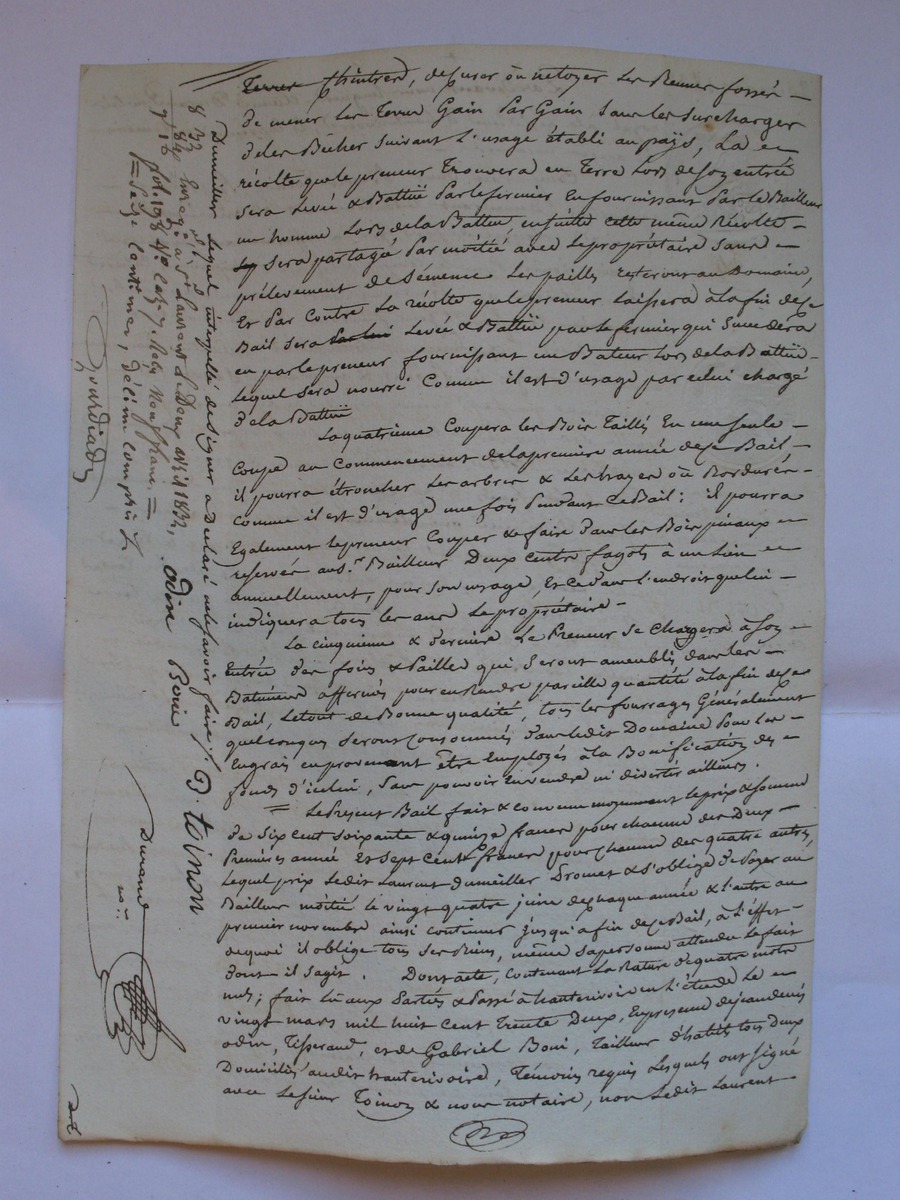 Terres Chintres, de curer où netoyer les Beuner fossés —
De mener les Terres Gain Par Gain Sans les Surcharger
Deles Bêcher Suivant L'usage établi au païs, La
récolte que le preneur Trouvera en Terre Lors de son entrée
Sera Levée & Battüe Par le fermier En fournissant Par le Bailleur
un homme Lors de la Battüe, ensuite cette même Récolte
Sera partagé Par moitié avec le propriétaire Sans
prélevement de Sémence Les pailles resteront au Domaine,
Et Par Contre La récolte que le preneur Laissera à la fin de ce
Bail Sera Levée & Battüe par le fermier qui Succedera
en par le preneur fournissant un Bateur Lors de la Battüe
Lequel Sera nourri Comme il est d'usage par celui chargé
De la Battüe
La quatrieme Coupera les Bois Taillis En une Seule
Coupe au Commencement de la premiere année de ce Bail —
il pourra étroncher Les arbres & Les hayes où Bordures —
Comme il est d'usage une fois Pendant Ce Bail ; il pourra
Egalement le preneur Couper & faire Dans les Bois pineaux
reservés au s.r Bailleur Deux cents fagots à un Lien
annuellement, pour Son usage, Et ce dans L'endroit que lui —
indiquera tous les ans Le propriétaire —
La cinquieme & derniere Le Preneur Se Chargera à Son
Entrée des foins & Pailles qui Seront ameublis dans les —
Batimens affermés pour en Rendre pareille quantité à la fin de ce
Bail, Le tout de Bonne qualité, tous les fourrages Généralement
quelconques Seront Consommés Dans ledit Domaine Pour les —
Engrais en provenant être Employés à la Bonification des
fonds d'icelui, Sans pouvoir En vendre ni divertir ailleurs.
= Le Present Bail fait & convenu moyennant le prix & Somme
De Six Cent Soixante & quinze francs pour chacune des Deux
Premières année Et Sept Cents francs pour Chacune des quatre autres,
Lequel prix Ledit Laurent Dumeiller Promet & S'oblige De Payer au
Bailleur moitié le vingt quatre juin de chaque année & L'autre au
premier novembre ainsi continuer jusqu'a fin de ce Bail, à L'effet
dequoi il oblige tous Ses Biens, même Sa personne attendu le fait
Dont il Sagit. Dont acte, Contenant La Nature de quatre mots
nuls ; fait Lû aux Parties & Passé à hauterivoire en L'étude Le
vingt mars mil huit Cent Trente Deux, En presence de jean denis
odin, Tisserand, et de Gabriel Boni, Tailleur D'habits tous deux
Domiciliés audit hauterivoire, Témoins requis Lesquels ont Signé
avec Le Sieur Toinon & nous notaire, non Ledit Laurent
Dumeiller Lequel interpellé de Signer a Declaré ne le Savoir faire ./. B. toinon
odin Boni
Durand
no.re
8 33
84
9 16
Enreg.é à S.t Laurent
avril 1832,
f.o 198
Reçu Neuf francs =
= Seize Centimes, Décime Compris